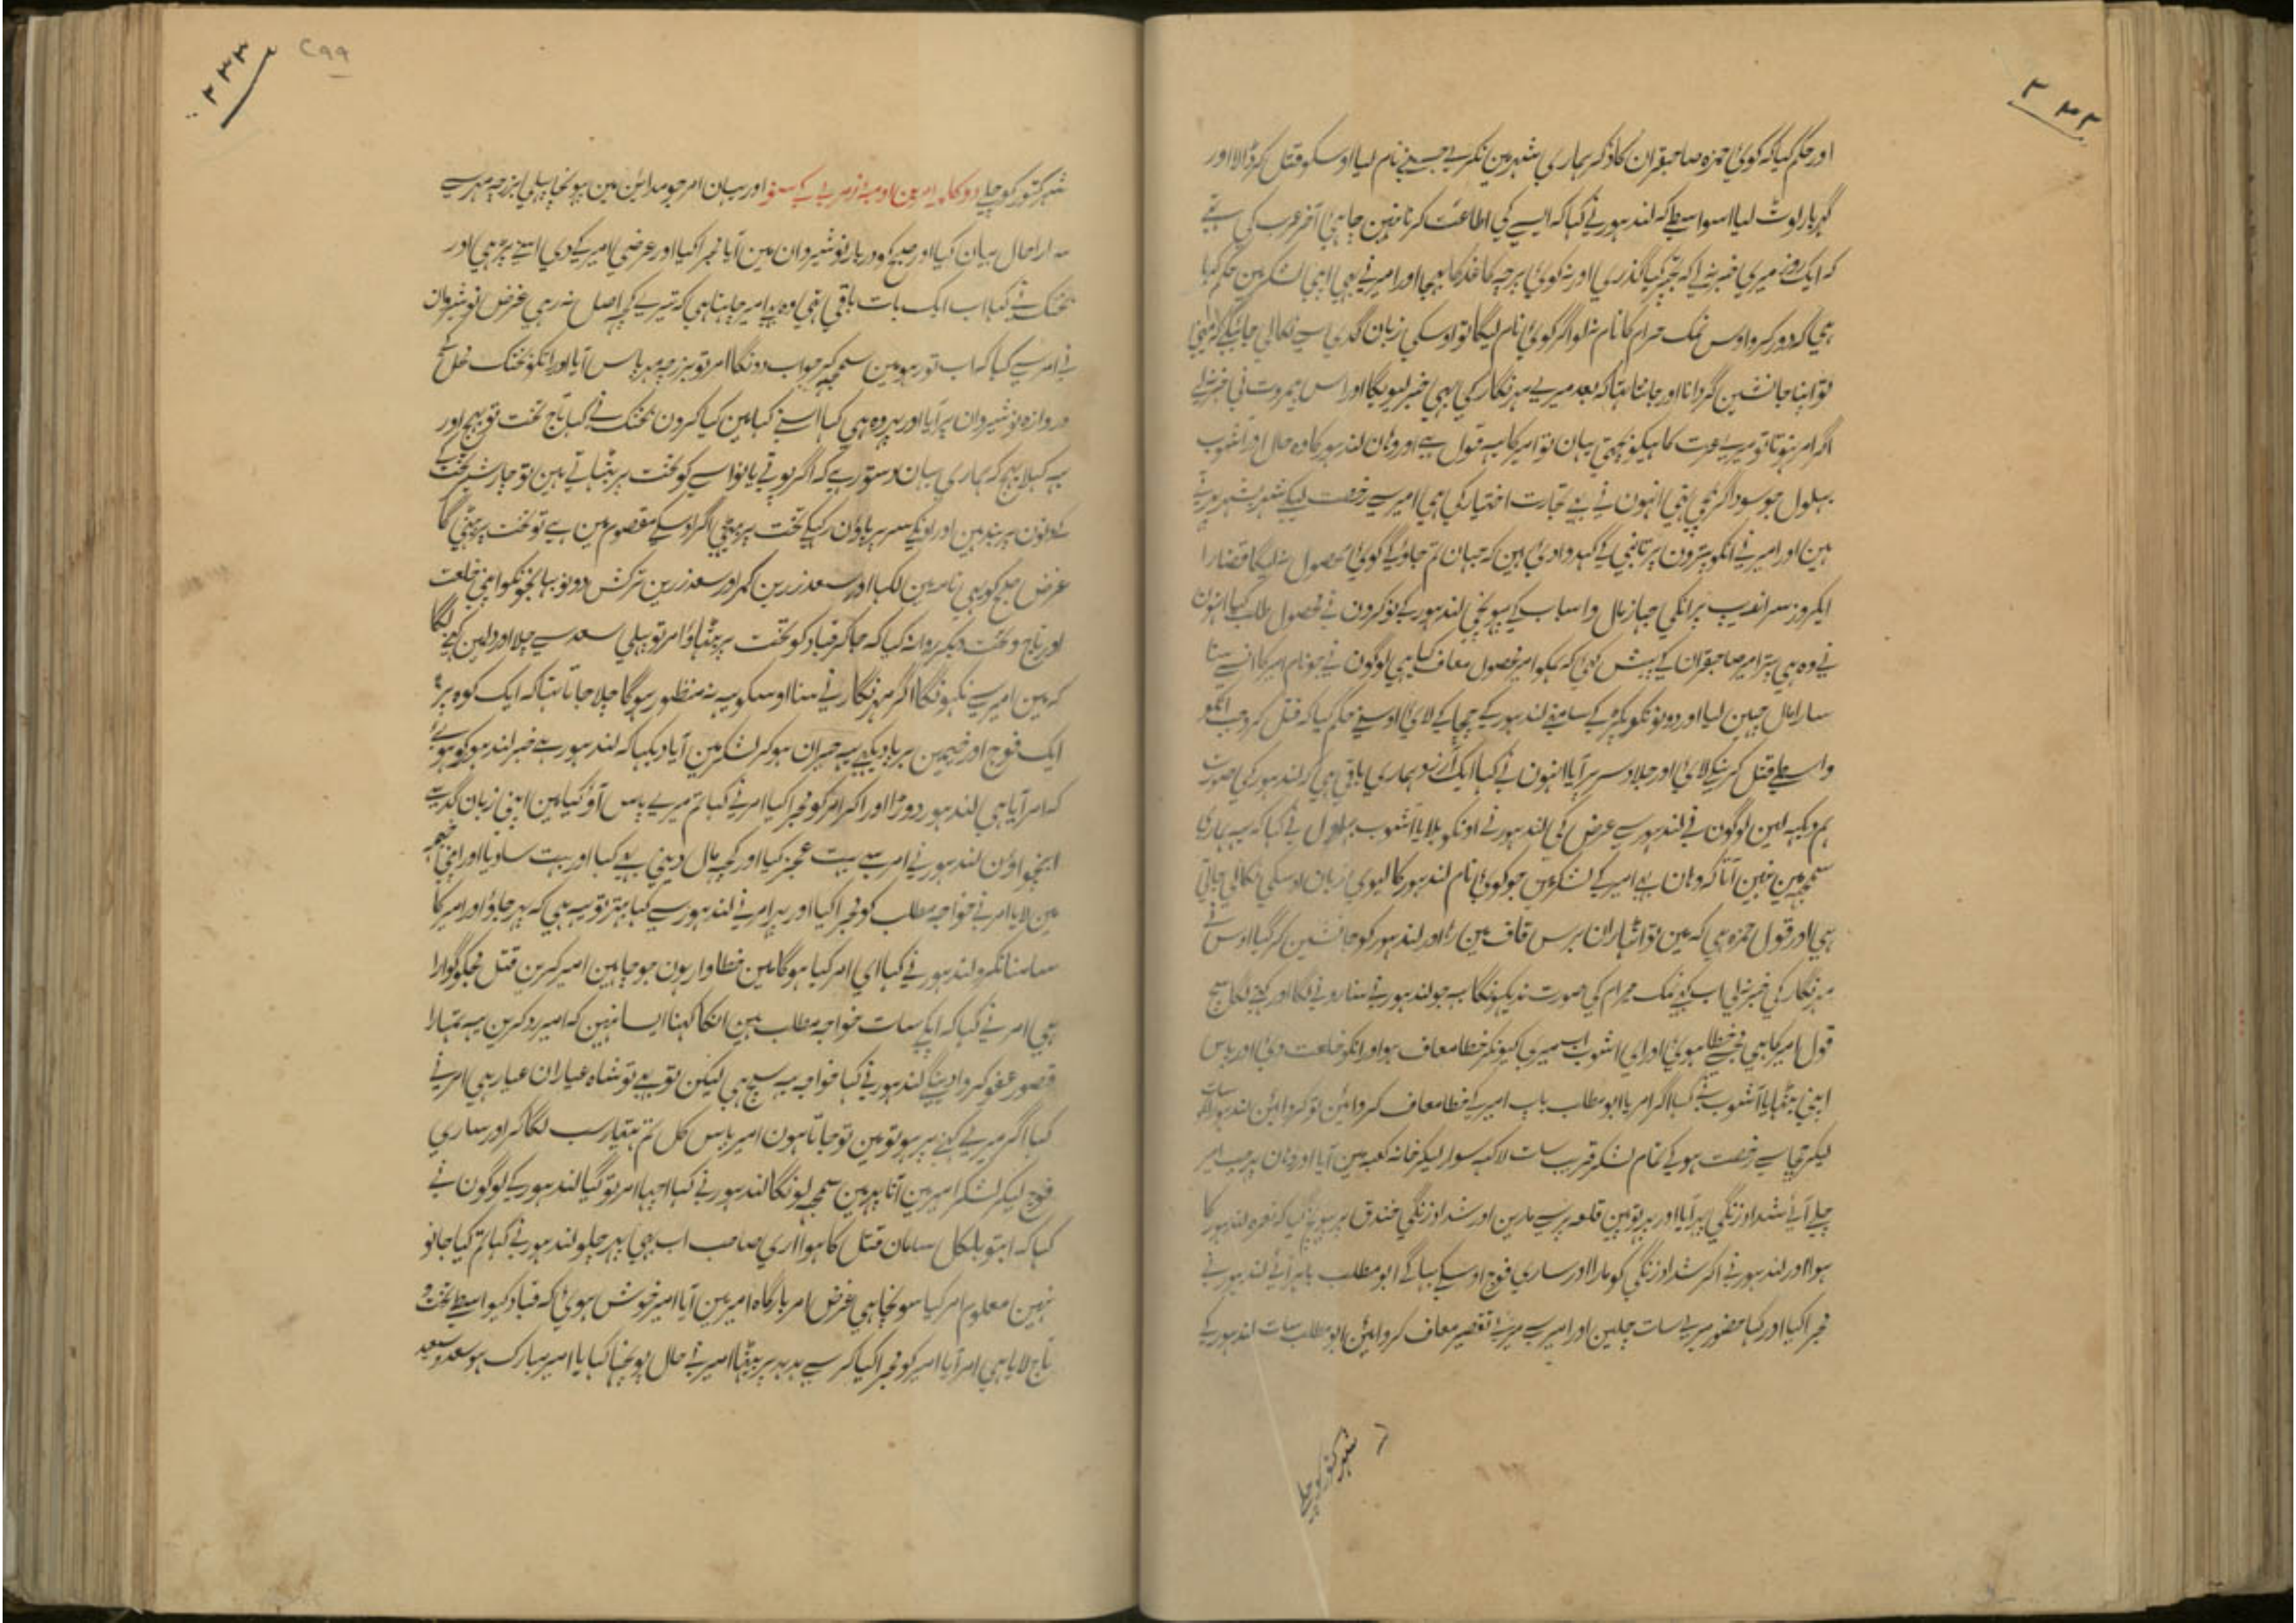 ۳۳۲
اور حکم کیا کہ کوئی حمزہ صاحبقران کا ذکر ہماری شہر مین نکرے جسنے نام لیا اوسکو قتل کر ڈالا اور
گہر بار لوٹ لیا اسواسطے کہ لندہور نے کہا کہ ایسے کی اطاعت کرنا نہین چاہئی آخر عرب کی ہتے
کہ ایک روز میری خبر نہ لے کہ تجہپر کیا گذری اور نہ کوئی پرچہ کاغذ کا بہیجا اور امیر نے بہی اپنی لشکر مین حکم کیا
ہی کہ دور کرو اوس نمک حرام کا نام نہ لو اگر کوئی نام لیگا تو اوسکی زبان گدی سے نکالی جائیگی کہ مینی
تو اپنا جانشین گردانا اور جانتا تہا کہ بعد میرے مہرنگار کی بہی خبر لیویگا اور اس بیمروت نی خبر نہ لے
اگر امر نہوتا تو میرے عزت کاہیکو بچتی یہان تو امیر کا یہ قول ہے اور وہان لندہور کا وہ حال اور آشوب
بہلول جو سوداگر بچی تہی انہون نی بہی تجارت اختیار کی ہی امیر سے رخصت لیکے شہر بشہر پہرتے
ہین اور امیر نے انکو پترون پر تانبی کے کہدوا دی ہین کہ جہان تم جاؤ گے کوئی محصول نہ لیگا قضارا
ایکروز سراندیپ پر انکی جہاز مال و اسباب کے پہونچی لندہور کے نوکرون نے محصول طلب کیا انہون
نے وہ ہی پترا امیر صاحبقران کے پیش کئے کہ ہمکو امیر محصول معاف کیا ہی لوگون نے جو نام امیر کا انسے سنا
سارا مال چہین لیا اور دونونکو پکڑ کے سامنے لندہور کے چچا کے لائی اوسنے حکم کیا کہ قتل کرو جب انکو
واسطے قتل کرنیکے لائی اور جلاد سر پر آیا انہون نے کہا ایک آرزو ہماری باقی ہی کہ لندہور کی صورت
ہم دیکہہ لین لوگون نے لندہور سے عرض کی لندہور نے اونکو بلایا آشوب بہلول نے کہا کہ یہ ہماری
سمجہہ مین نہین آتا کہ وہان بہی امیر کے لشکر مین جو کوئی نام لندہور کا لیوی زبان اوسکی نکالی جاتی
ہی اور قول حمزہ ہی کہ مین تو اٹہاران برس قاف مین رہا اور لندہور کو جانشین کر گیا اوس نے
مہرنگار کی خبر نہ لی اب کے نمک حرام کی صورت ندیکہونگا یہ جو لندہور نے سنا رونے لگا اور کہنے لگا سچ
قول امیر کا ہی مجہسے خطا ہوئی اور ای آشوب اب میری کیونکر خطا معاف ہو اور انکو خلعت دی اور پاس
اپنی بٹہایا آشوب نے کہا اگر امر یا ابو مطلب باپ امیر کے خطا معاف کروائین تو کروائین لندہور سات
لیکر چچا سے رخصت ہوکے تمام لشکر قریب سات لاکہہ سوار لیکر خانہ کعبہ مین آیا اور وہان پر جب امیر
چلے آئے شداد زنگی پہر آیا اور پہر توپین قلعہ پر سے مارین اور شداد زنگی خندق پر پہونچا کہ نعرہ لندہور کا
ہوا اور لندہور نے اکر شداد زنگی کو مارا اور ساری فوج اوسکے بہاگے ابو مطلب باہر آئے لندہور نے
مجرا کیا اور کہا حضور میرے سات چلین اور امیر سے میرے تقصیر معاف کروائین ابو مطلب سات لندہور کے
شہر کنور کو چلے
۳۳۳
۲۹۹
شہر کنور کو چلے اور یہان امر جو مداین مین پہونچا پہلی بزرجمہر سے
سارا حال بیان کیا اور صبح کو دربار نوشیروان مین آیا مجرا کیا اور عرضی امیر کے دی اسنے پڑہی اور
بختک نے کہا اب ایک بات باقی تہی وہ بہی امیر چاہتا ہی کہ تیرے کچہہ اصل نہ رہی غرض نوشیروان
نے امر سے کہا کہ اب تو رہو مین سمجہہ کر جواب دونگا امر تو بزرجمہر پاس آیا اور انکو بختک
دروازہ نوشیروان پر آیا اور پہر وہ ہی کہا اسنے کہا مین کیا کرون بختک نے کہا تاج تخت تو بہیج اور
یہ کہلا بہیج کہ ہماری یہان دستور ہے کہ اگر پوتے یا نواسے کو تخت پر بٹہاتے ہین تو چار شیر تخت کے
کونون پر بندہین اور اونکے سر پر پاؤن رکہکے تخت پر بیٹہی اگر اوسکے مقسوم مین ہے تو تخت پر بیٹہی گا
غرض صبح کو یہی نامہ مین لکہا اور سعد زرین کمر اور سعد زرین ترکش دونو بہانجونکو اپنی خلعت
اور تاج و تخت دیکر روانہ کیا کہ جا کر قباد کو تخت پر بٹہاؤ امر تو پہلی سعد سے چلا اور دلمین کہنے لگا
کہ مین امیر سے نکہونگا اگر مہرنگار نے سنا اوسکو یہ نہ منظور ہوگا چلا جاتا تہا کہ ایک کوہ پر
ایک فوج اور خیمین برپا دیکہی یہ حیران ہوکر لشکر مین آیا دیکہا کہ لندہور ہے خبر لندہور کو ہوئی
کہ امر آیا ہی لندہور دوڑا اور اکر امر کو مجرا کیا امر نے کہا تم میرے پاس آؤ کیا مین اپنی زبان گدی سے
کہنچواؤن لندہور نے امر سے بہت عجز کیا اور کچہہ مال دینی بہی کہا اور بہت سا دیا اور اپنی خیمہ
مین لایا امر نے خواجہ مطلب کو مجرا کیا اور پہر امر نے لندہور سے کہا بہتر تو یہ ہی کہ پہر جاؤ اور امیر کا
سامنا نکرو لندہور نے کہا ای امر کیا ہوگا مین خطاوار ہون جو چاہین امیر کرین قتل مجکو گوارا
ہی امر نے کہا کہ ایک سات خواجہ مطلب ہین انکا کہنا ایسا نہین کہ امیر رد کرین یہ تمہارا
قصور عفو کروا دینگے لندہور نے کہا خواجہ یہ سچ ہی لیکن تو بہی تو شاہ عیاران عیار ہی امر نے
کہا اگر میرے کہنے پر ہو تو مین تو جاتا ہون امیر پاس کل تم ہتیار سب لگا کر اور ساری
فوج لیکر لشکر امیر مین آنا پہر مین سمجہہ لونگا لندہور نے کہا اچہا امر تو گیا لندہور کے لوگون نے
کہا کہ ابتو بلکل سامان قتل کا ہوا اری صاحب اب بہی پہر چلو لندہور نے کہا تم کیا جانو
نہین معلوم امر کیا سونچا ہی غرض امر بارگاہ امیر مین آیا امیر خوش ہوئی کہ قباد کیواسطے تخت و
تاج لایا ہی امر آیا امیر کو مجرا کیا کرسے ہدہد پر بیٹہا امیر نے حال پوچہا کہا یا امیر مبارک ہو سعد و سعید